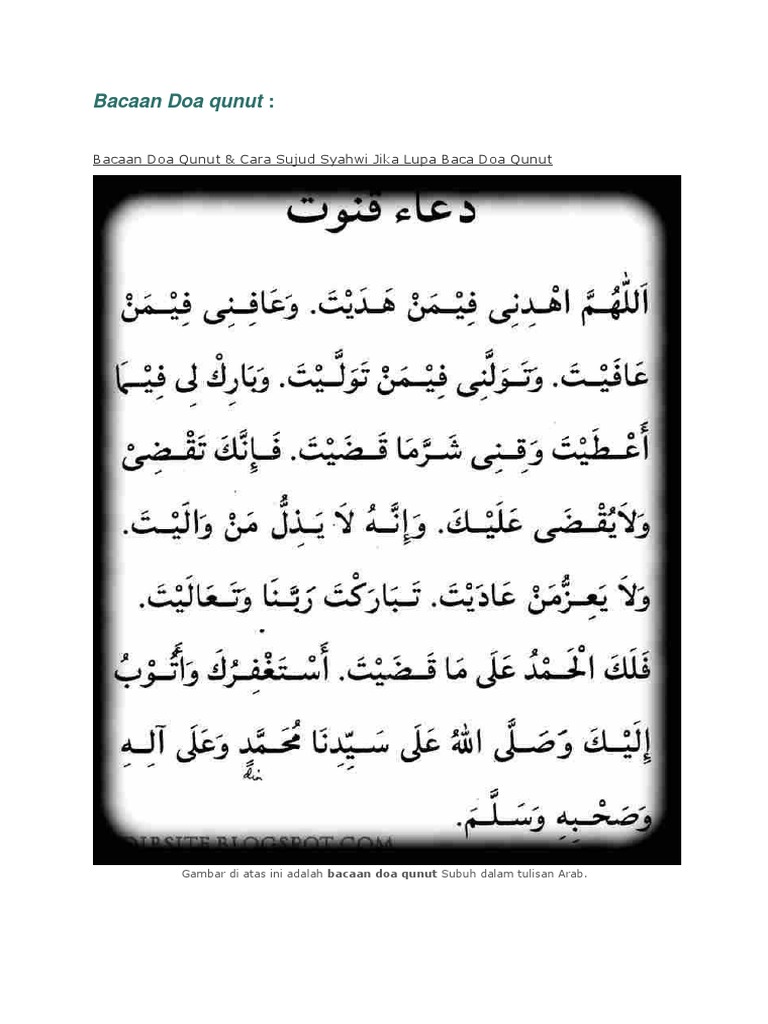 Bacaan Doa qunut :
Bacaan Doa Qunut & Cara Sujud Syahwi Jika Lupa Baca Doa Qunut
دعاء قنوت
اَللّٰهُمَّ اهْدِنِى فِيْمَنْ هَدَيْتَ. وَعَافِنِى فِيْمَنْ
عَافَيْتَ. وَتَوَلَّنِى فِيْمَنْ تَوَلَّيْتَ. وَبَارِكْ لِى فِيْمَا
أَعْطَيْتَ وَقِنِى شَرَّمَا قَضَيْتَ. فَإِنَّكَ تَقْضِىْ
وَلاَيُقْضَى عَلَيْكَ. وَإِنَّهُ لاَ يَذِلُّ مَنْ وَالَيْتَ.
وَلاَ يَعِزُّمَنْ عَادَيْتَ. تَبَارَكْتَ رَبَّنَا وَتَعَالَيْتَ.
فَلَكَ الْحَمْدُ عَلَى مَا قَضَيْتَ. أَسْتَغْفِرُكَ وَأَتُوْبُ
إِلَيْكَ وَصَلَّى اللهُ عَلَى سَيِّدِنَا مُحَمَّدٍ وَعَلَى آلِهِ
وَصَحْبِهِ وَسَلَّمَ.
Gambar di atas ini adalah bacaan doa qunut Subuh dalam tulisan Arab.